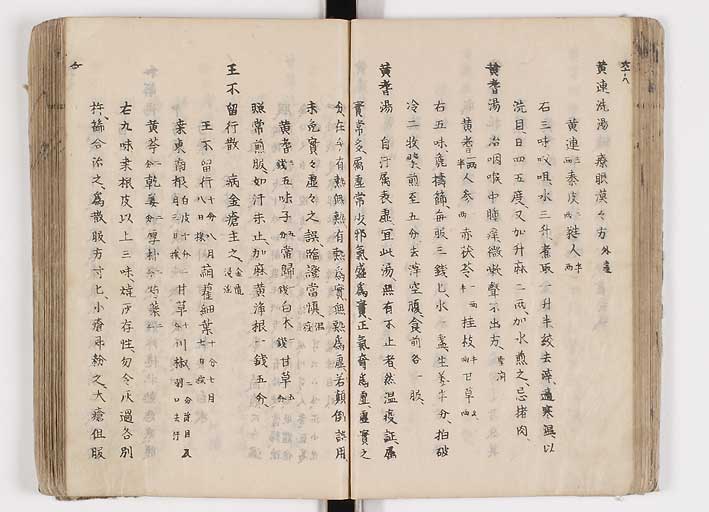 黄連洗湯 療眼漠々方 外臺
黄連 二両 秦皮 二両 蕤人 半両
右三味㕮咀水三升煮取一升半絞去滓適寒温以
洗目日四五度又加升麻二両加水煎之忌猪肉
黄耆湯 治咽喉中腫痒微嗽聲不出方
黄耆 人参 赤茯苓 桂枝 甘草
右五味麁擣篩每服三錢匕水一盞生姜半分拍破
煎至五分去滓空腹食前各一服
黄耆湯 自汗属表虚宜此湯 有不止者然温疫証属
實常多属虚常少邪氣盛爲實正氣奪爲虚虚實之
在 有熱無熱有熱爲實無熱爲虚若顛倒誤用
未免實々虚々之誤臨證當慎 温疫
黄耆 三錢 五味子 當歸 白朮 一錢 甘草
照常煎服如汗未止加麻黄浄根一錢五分
王不留行散 病金瘡主之
王不留行 十分八月八日採 蒴藋細葉 十分七月七日採
桑東南根 白皮十分三月三日採 甘草 川椒
黄芩 二分 乾姜 二分 厚朴 二分 芍薬 二分
右九味桑根皮以上三味燒灰存性勿令灰過各別
杵篩合治之爲散服方寸匕小瘡即粉之大瘡但服